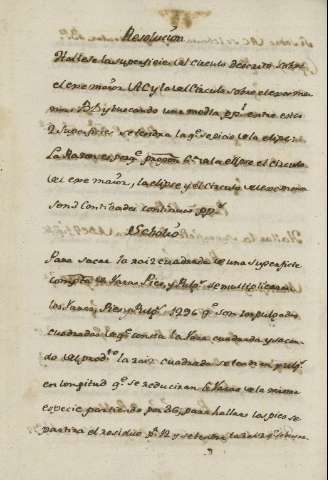 Resolución
Hallese la superficie del circulo descrito sobre
el exe maior AC y la del Circulo sobre el exe me
nor BD y buscando una media pp.l entre estas
2 Superficies se tendra la q.e se dice de la elipse
La Razon es, porq.e el Circulo
del exe maior, la elipse y el Circulo del exe menor
son 3 Cantidades continuas pp.s
Scholio
Para sacar la raiz cuadrada de una superficie
compta de Varas, Pies, y Pulg.s se multiplicaran
las Varas, Pies y Pulg.s 1296 q.e son las pulgadas
cuadradas de q.e consta la Vara cuadrada y sacan
do del prod.to la raiz cuadrada se tendran pulg.s
en longitud q.e se reduciran a Varas de la misma
especie partiendo por 36, para hallar los pies se
partira el residuo p.r 12 y se tendra la raiz q.e se busca